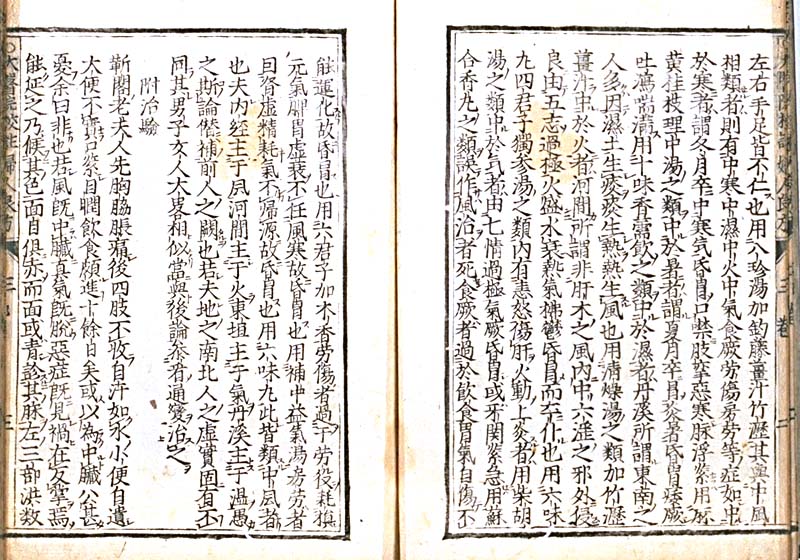 左右手足皆不仁也用八珍湯加鈎藤薑汁竹瀝其與中風
相類者則有中寒中濕中火中氣食厥勞傷房勞等症如中
於寒者謂冬月卒中寒氣昏冒口噤肢攣惡寒脉浮緊用麻
黃桂枝理中湯之類中於暑者謂夏月卒冒炎暑昏冒痿厥
吐瀉喘滿用十味香薷飲之類中於濕者丹溪所謂東南之
人多因濕土生痰痰生熱熱生風也用清燥湯之類加竹瀝
薑汁中於火者河間所謂非肝木之風內中六淫之邪外侵
良由五志過極火盛水衰熱氣拂鬱昏冒而卒仆也用六味
九四君子獨參湯之類內有恚怒傷肝火動上炎者用柴胡
湯之類中於氣者由七情過極氣厥昏冒或牙關緊急用蘇
合香九之類誤作風治者死食厥者過於飲食胃氣自傷不
能運化故昏冒也用六君子加木香勞傷者過于勞役耗損
元氣脾胃虛衰不任風寒故昏冒也用補中益氣湯房勞者
因腎虛精耗氣不歸源故昏冒也用六味九此皆類中風者
也夫內經主于風河間主于火東垣主于氣丹溪主于濕愚
之斯論僃補前人之闕也若夫地之南北人之虛實固有不
同其男子女人大畧相似當與後論叅看通變治之
附治驗
靳閣老夫人先胸脇脹痛後四肢不收自汗如水小便自遺
大便不實口緊目瞤飲食頗進十餘日矣或以為中臟公甚
憂余曰非也若風旣中臟眞氣旣脫惡症旣見禍在反掌焉
能延之乃候其色面目俱赤而面或青診其脉左三部洪數